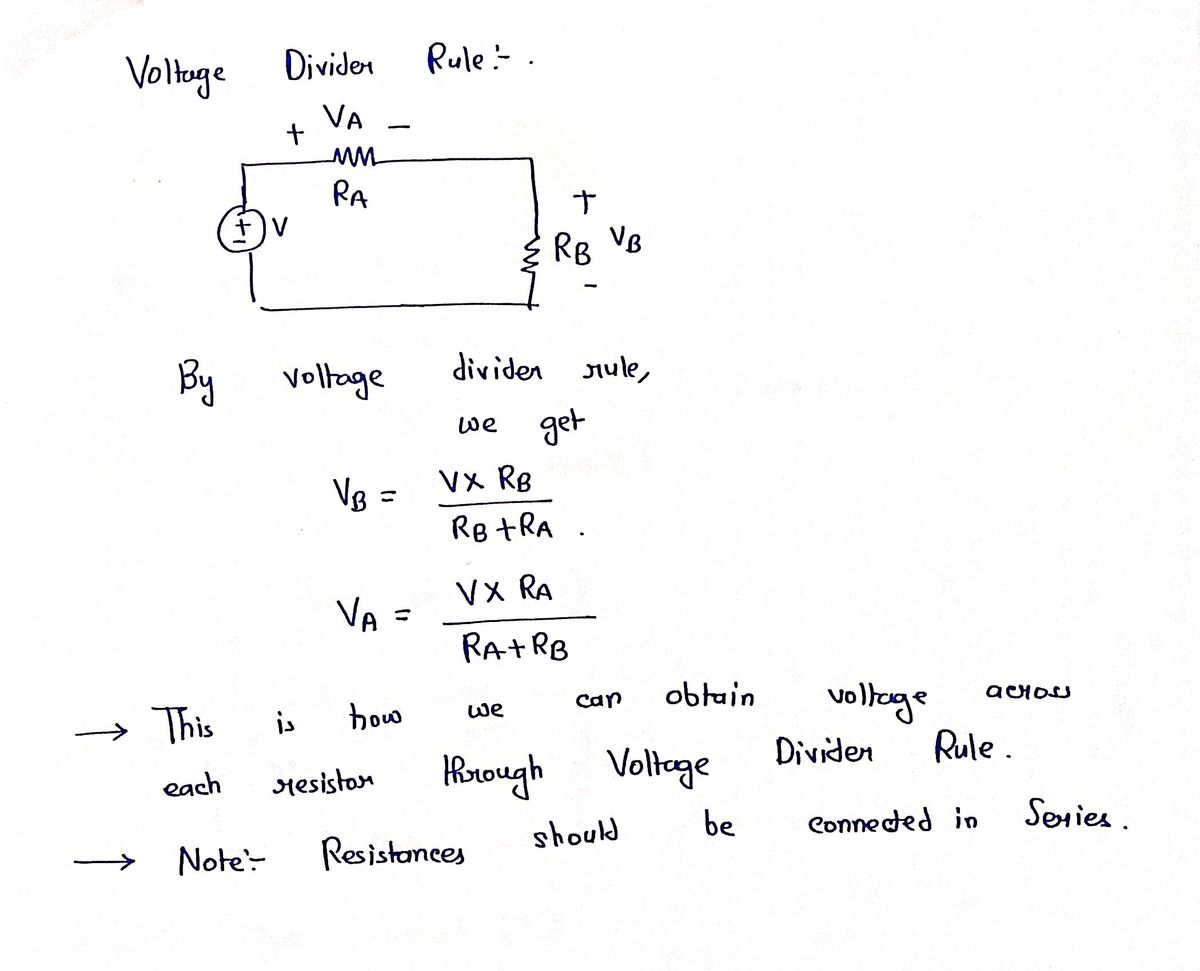 Voltage Divider Rule:- .
+ VA -
RA
+
V
+
-
RB VB
-
By voltage divider rule,
we get
VB = V x RB
RB + RA .
VA = V x RA
RA + RB
→ This is how we can obtain voltage across
each resistor through Voltage Divider Rule.
→ Note:- Resistances should be connected in Series.